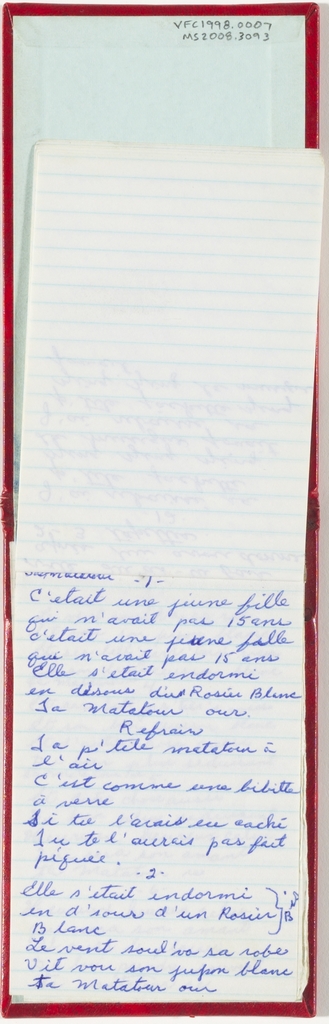 VFC1998.0007
MS2008.3093
-1-
C'etait une jiune fille
qui n'avait pas 15 ans
c'etait une jeune fille
qui n'avait pas 15 ans
Elle s'etait endormi
en désous d'un Rosier Blanc
Ta Matatour our.
Refrain
Ta p'tite matatou à
l'air
C'est comme une bibitte
à verre
Si tu l'avais eu caché
Tu te l'aurais pas fait
piquée.
-2-
Elle s'etait endormi
en d'sour d'un Rosier
Blanc
Le vent soul'va sa robe
Vit vou son jupon blanc
Ta Matatour our